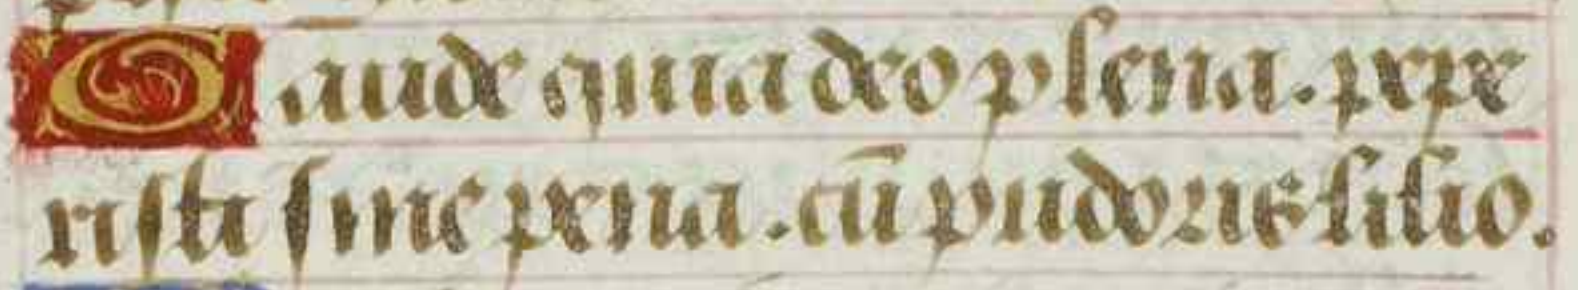 Gaude quia deo plena. pepe
risti sine pena. cū pudoris lilio.